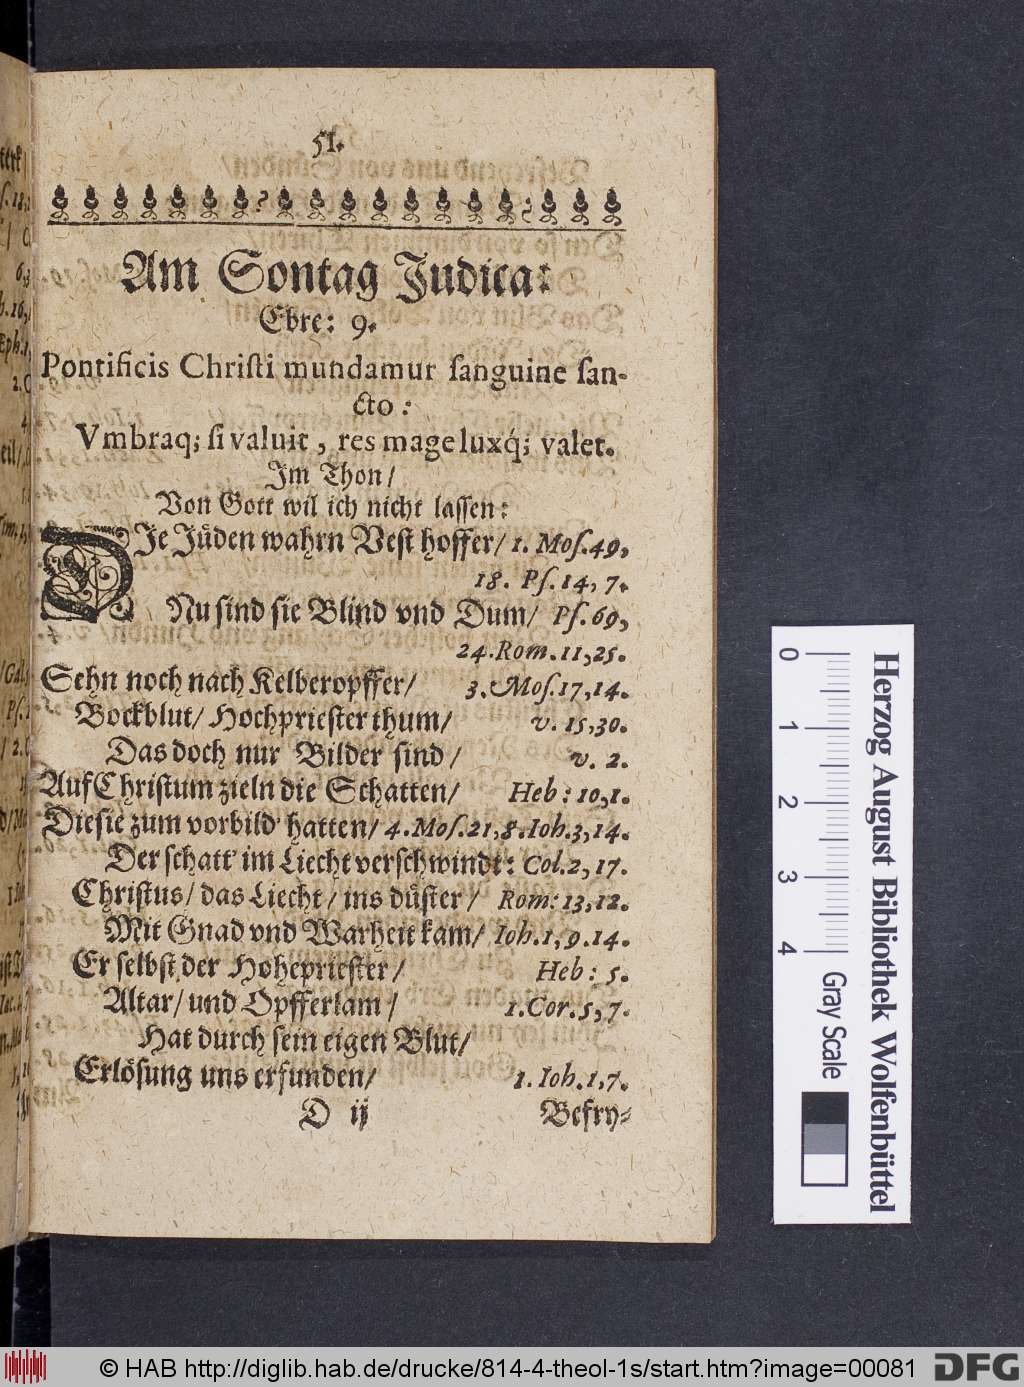 51.
Am Sontag Judica:
Ebre: 9.
Pontificis Chriſti mundamur ſanguine ſan-
cto:
Vmbraq; ſi valuit, res mage luxq́; valet.
Im Thon/
Von Gott wil ich nicht laſſen:
DIe Jüden wahrn Veſt hoffer/ 1. Moſ. 49,
18. Pſ. 14, 7.
Nu ſind ſie Blind vnd Dum/ Pſ. 69,
24. Rom. 11, 25.
Sehn noch nach Kelberopffer/ 3. Moſ. 17, 14.
Bockblut/ Hochprieſterthum/ v. 15, 30.
Das doch nur Bilder ſind/ v. 2.
Auf Chriſtum zieln die Schatten/ Heb: 10, 1.
Die ſie zum vorbild' hatten/ 4. Moſ. 21, 8. Ioh. 3, 14.
Der ſchatt' im Liecht verſchwindt: Col. 2, 17.
Chriſtus/ das Liecht/ ins düſter/ Rom: 13, 12.
Mit Gnad vnd Warheit kam/ Ioh. 1, 9. 14.
Er ſelbſt, der Hoheprieſter/ Heb: 5.
Altar/ und Opfferlam/ 1. Cor. 5, 7.
Hat durch ſein eigen Blut/
Erlöſung uns erfunden/ 1. Ioh. 1, 7.
D ij Befry-
0 1 2 3 4
Gray Scale
Herzog August Bibliothek Wolfenbüttel
© HAB http://diglib.hab.de/drucke/814-4-theol-1s/start.htm?image=00081
DFG